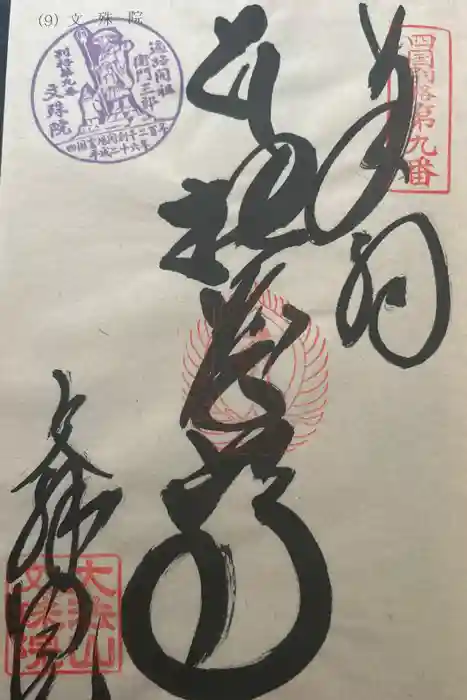 (9) 文殊院
四国別格第九番
奉納
地蔵尊
文殊院
遍路開祖
衛門三郎
別格第九番
文殊院
四国霊場開創千二百年
平成二十六年
大法山
文殊院